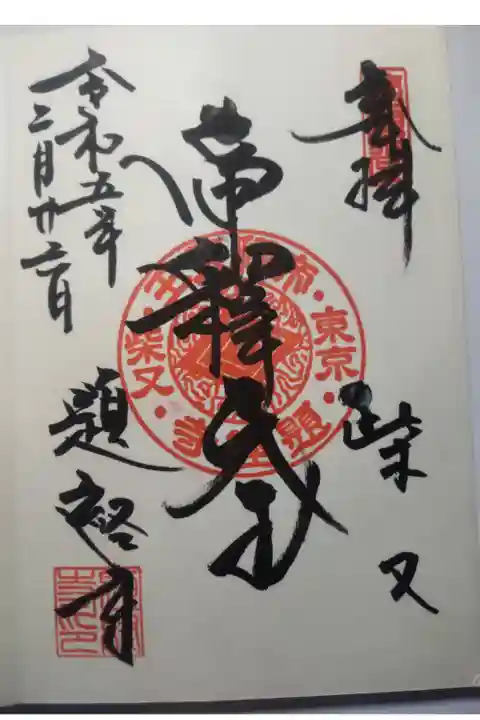 奉拝
柴又
帝釋天王
令和五年
二月廿二日
題經寺
東京
柴又